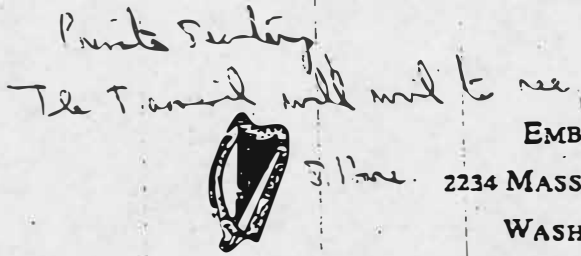 Private Secretary
The Taoiseach will wish to see
EMB
2234 MASS
WASH